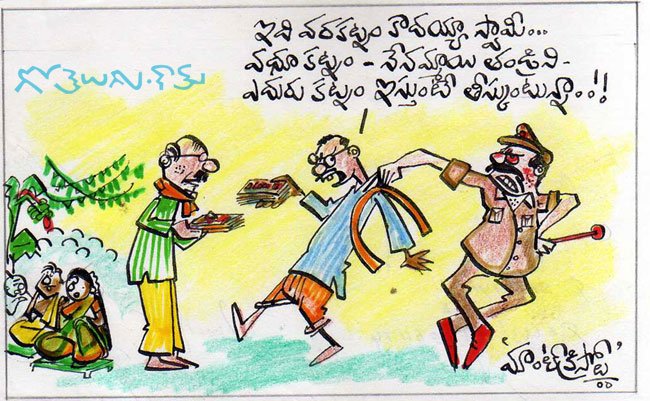 ఇది వరకట్నం కాదయ్యా స్వామీ...
వధూ కట్నం - నేనమ్మాయి తండ్రిని -
ఎదురు కట్నం ఇస్తుంటే తీస్కుంటున్నా..!!
గోతెలుగు.కామ్